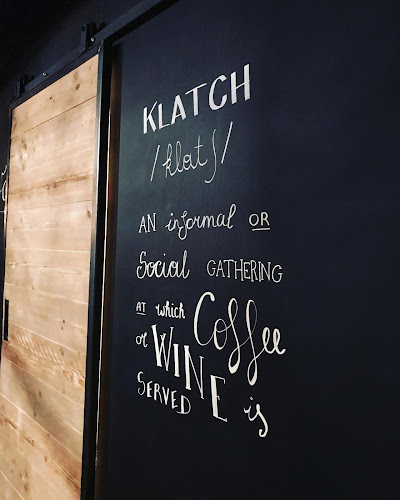 KLATCH
/klatʃ/
AN informal OR
Social GATHERING
AT which Coffee
or WINE is
SERVED